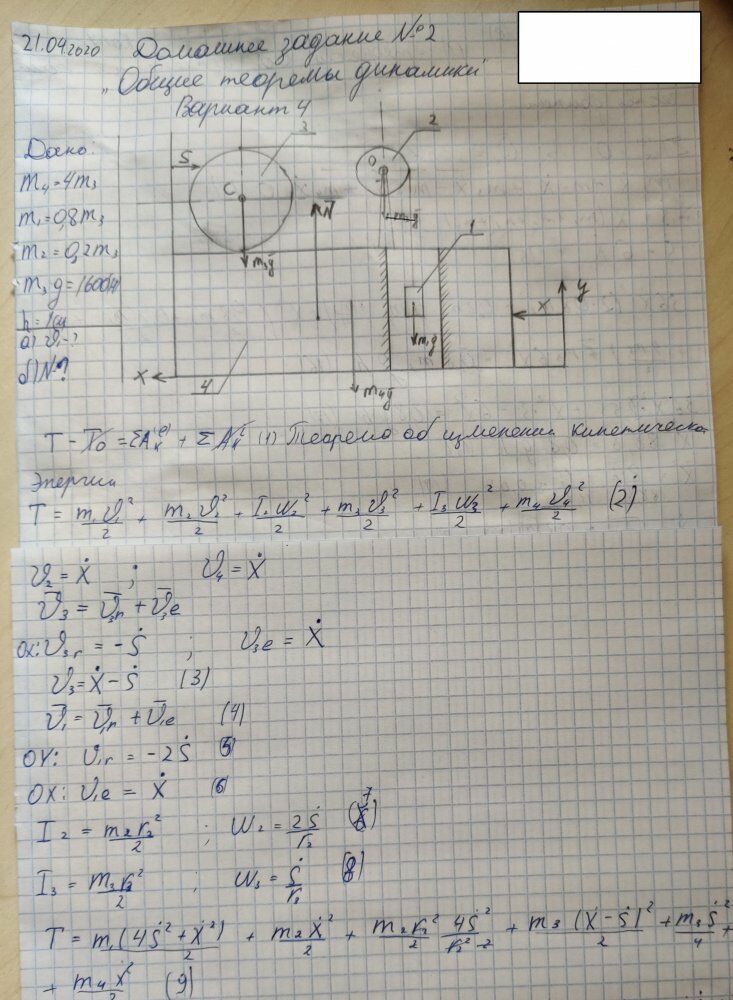 21.04.2020 Домашнее задание №2
„Общие теоремы динамики"
Вариант 4
Дано:
m₄=4m₃
m₁=0,8m₃
m₂=0,2m₃
m₃g=1600(H)
h=1см
а) υ₁-?
б) N-?
S
C
3
O
2
N̄
1
m₃ḡ
m₁g
m₄ḡ
4
X
X
y
T - T₀ = ΣAₖ⁽ᵉ⁾ + ΣAₖⁱ (1) Теорема об изменении кинетическо
Энергии
T = m₁υ₁²/2 + m₂υ₂²/2 + I₂ω₂²/2 + m₃υ₃²/2 + I₃ω₃²/2 + m₄υ₄²/2 (2)
υ₂ = Ẋ ; υ₄ = Ẋ
ῡ₃ = ῡ₃r + ῡ₃e
OX: υ₃r = -Ṡ ; υ₃e = Ẋ
υ₃ = Ẋ - Ṡ (3)
ῡ₁ = ῡ₁r + ῡ₁e (4)
OY: υ₁r = -2Ṡ (5)
OX: υ₁e = Ẋ (6)
I₂ = m₂r₂²/2 ; ω₂ = 2Ṡ/r₂ (7)
I₃ = m₃r₃²/2 ; ω₃ = Ṡ/r₃ (8)
T = m₁(4Ṡ² + Ẋ²)/2 + m₂Ẋ²/2 + m₂r₂²/2 4Ṡ²/r₂²·2 + m₃(Ẋ - Ṡ)²/2 + m₃Ṡ²/4 +
+ m₄Ẋ²/2 (9)